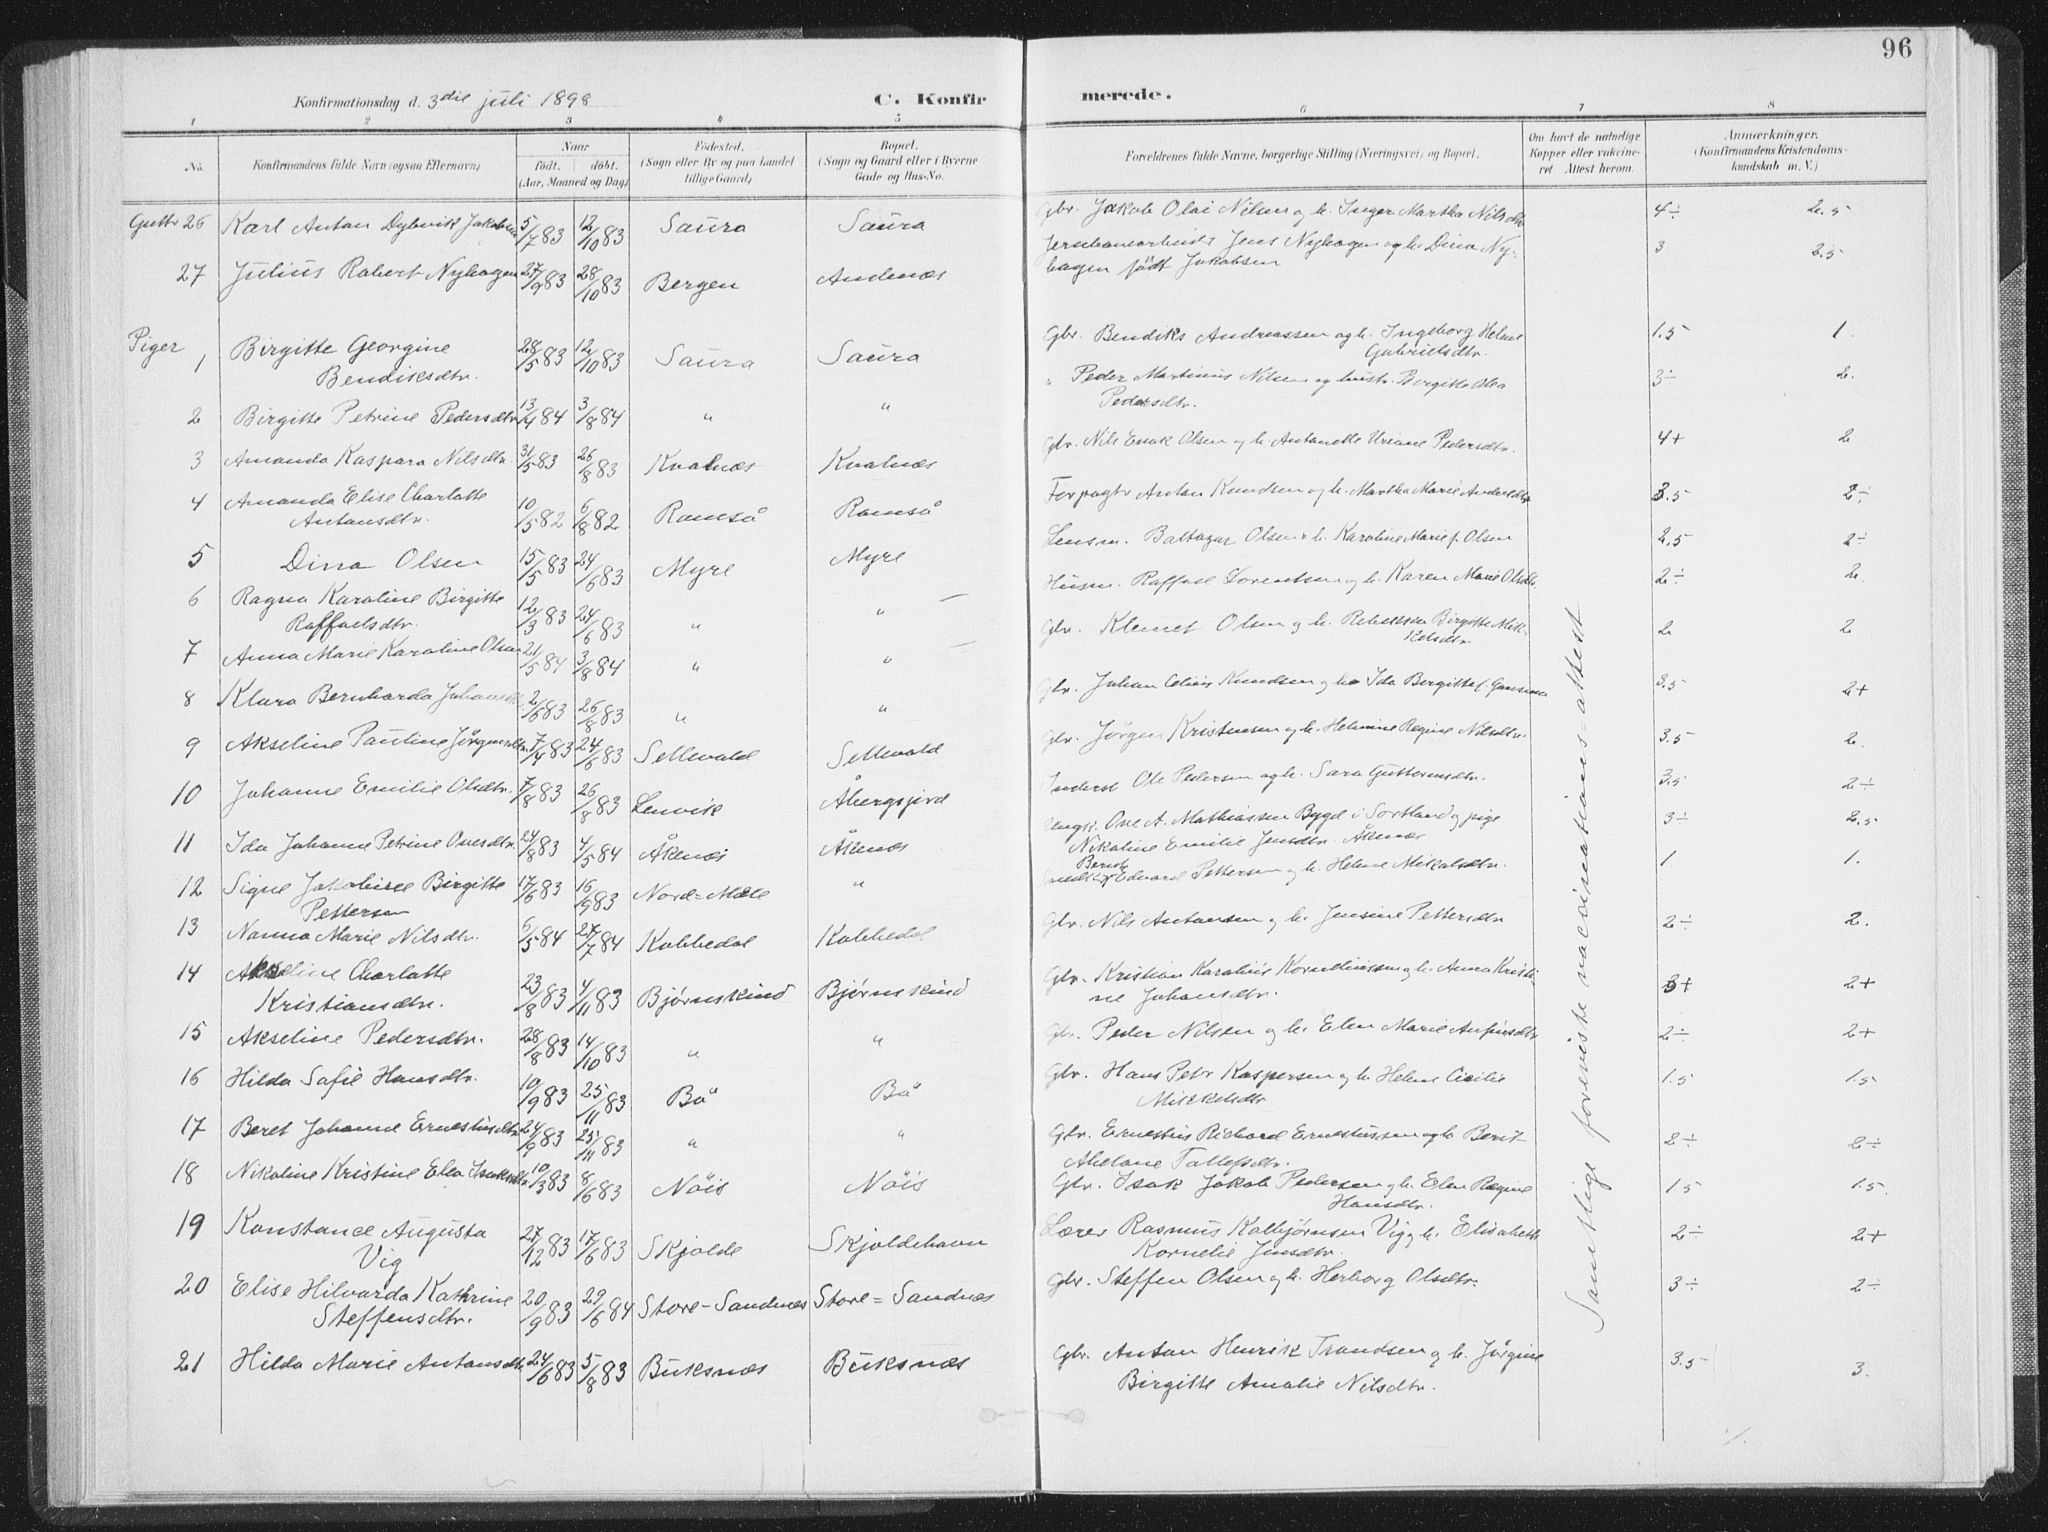 96
Konfirmationsdag d. 3die juli 1898 C. Konfirmerede.
1 2 3 4 5 6 7 8
No. Konfirmandens fulde Navn (ogsaa Efternavn) Naar födt. döbt. (Aar, Maaned og Dag) Födested. (Sogn eller By og paa Landet tillige Gaard) Bopæl. (Sogn og Gaard eller i Byerne Gade og Hus-No. Forældrenes fulde Navne, borgerlige Stilling (Næringsvei) og Bopæl. Om havt de naturlige Kopper eller vakcineret. Attest herom. Anmærkninger. (Konfirmandens Kristendomskundskab m. V.)
Gutter 26 Karl Anton Dybvik Jakobsen 5/7 83 12/10 83 Saura Saura Gbr. Jakob Olai Nilsen og h. Inger Martha Nilsdtr 4÷ 2.5
27 Julius Robert Nyhagen 27/9 83 28/10 83 Bergen Andenæs Jernbanearbeider Jens Nyhagen og h. Dina Ny- 3 2.5
hagen født Jakobsen
Piger 1 Birgitte Georgine 28/5 83 12/10 83 Saura Saura Gbr. Bendiks Andreassen og h. Ingeborg Helene 1.5 1.
Bendiksdtr. Gabrielsdtr.
2 Birgitte Petrine Pedersdtr 13/4 84 3/8 84 " " " Peder Martinus Nilsen og hustr. Birgitte Olea 3÷ 2.
Pedersdtr.
3 Amanda Kaspara Nilsdtr. 31/5 83 26/8 83 Kvalnæs Kvalnæs Gbr. Nils Enok Olsen og h. Antonette Uriane Pedersdtr. 4+ 2
4 Amanda Elise Charlotte 10/5 82 6/8 82 Romså Romså Forpagtr Anton Knudsen og h. Martha Marie Andersdtr 3.5 2÷
Antonsdtr.
5 Dina Olsen 15/5 83 24/6 83 Myre Myre Lensm. Baltazar Olsen & h. Karoline Marie f. Olsen 2.5 2÷
6 Ragna Karoline Birgitte 12/3 83 24/6 83 " " Husm. Raffael Lorentsen og h. Karen Marie Olsdtr. 2÷ 2.
Raffaelsdtr.
7 Anna Marie Karoline Olsen 21/5 84 3/8 84 " " Gbr. Klemet Olsen og h. Rebekka Birgitte Mik- 2 2
kelsdtr
8 Klara Bernharda Johansdtr 2/6 83 26/8 83 " " Gbr. Johan Celius Knudsen og h. Ida Birgitte f. 3.5 2+
9 Akseline Pauline Jørgensdtr. 7/4 83 24/6 83 Sellevold Sellevold Gbr. Jørgen Kristensen og h. Helmine Regine Nilsdtr. 3.5 2.
10 Johanne Emilie Olsdtr. 7/8 83 26/8 83 Lenvik Åbergsjord Inderst Ole Pedersen og h. Sara Guttormsdtr. 3.5 2÷
11 Ida Johanne Petrine Ovesdtr. 24/8 83 4/5 84 Åknæs Åknæs Ungk. Ove A. Mathiassen Bygd i Sortland og pige 3÷ 2.5
Nikoline Emilie Jensdtr. Åknæs
12 Signe Jakobine Birgitte 17/6 83 16/9 83 Nord=Mæle " Edvard Pettersen og h. Helene Mikalsdtr. 1. 1.
Pettersen
13 Nanna Marie Nilsdtr. 6/5 84 27/7 84 Kobbedal Kobbedal Gbr. Nils Antonsen og h. Jensine Pettersdtr 2÷ 2.
14 Akseline Charlotte 23/8 83 4/11 83 Bjørnskind Bjørnskind Gbr. Kristian Karolius Korneliussen og h. Anna Kristi- 3+ 2+
Kristiansdtr. ne Johansdtr.
15 Akseline Pedersdtr. 28/8 83 14/10 83 " " Gbr. Peder Nilsen og h. Elen Marie Anfinsdtr 2÷ 2+
16 Hilda Sofie Hansdtr. 10/9 83 25/11 83 Bø Bø Gbr. Hans Petr Kaspersen og h. Helene Cicilie 1.5 1.5
Mikkelsdtr
17 Beret Johanne Ernestusdtr 24/9 83 25/11 83 " " Gbr. Ernestus Richard Ernestussen og h. Berit 2÷ 2÷
Abelone Tollefsdtr.
18 Nikoline Kristine Elen Isaksdtr 10/3 83 8/6 83 Nöis Nöis Gbr. Isak Jakob Pedersen og h. Elen Regine 1.5 1.5.
Hansdtr.
19 Konstance Augusta 27/12 83 17/6 83 Skjolde Skjoldehavn Lærer Rasmus Kolbjørnsen Vig og h. Elisabeth 2÷ 2+
Vig Kornelie Jensdtr.
20 Elise Hilvarda Kathrine 20/9 83 29/6 84 Store-Sandnæs Store=Sandnæs Gbr. Steffen Olsen og h. Herborg Olsdtr. 3÷ 2÷
Steffensdtr.
21 Hilda Marie Antonsdtr 24/6 83 5/8 83 Buksnæs Buksnæs Gbr. Anton Henrik Trondsen og h. Jørgine 3.5 3.
Birgitte Amalie Nilsdtr.
Samtlige foreviste vaccinationsattest